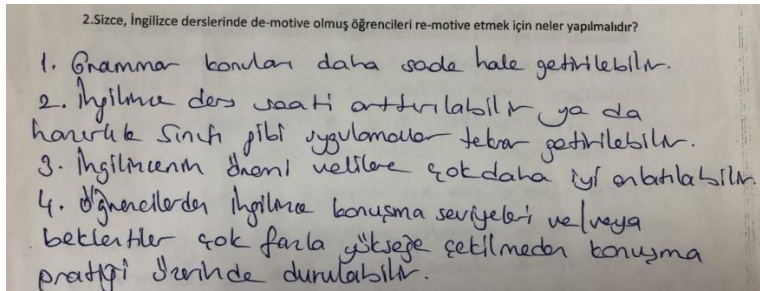 2.Sizce, İngilizce derslerinde de-motive olmuş öğrencileri re-motive etmek için neler yapılmalıdır?
1. Grammar konuları daha sade hale getirilebilir.
2. İngilizce ders saati arttırılabilir ya da
hazırlık sınıfı gibi uygulamalar tekrar getirilebilir.
3. İngilizcenin önemi velilere çok daha iyi anlatılabilir.
4. Öğrencilerden İngilizce konuşma seviyeleri ve/veya
beklentiler çok fazla yükseğe çekilmeden konuşma
pratiği üzerinde durulabilir.